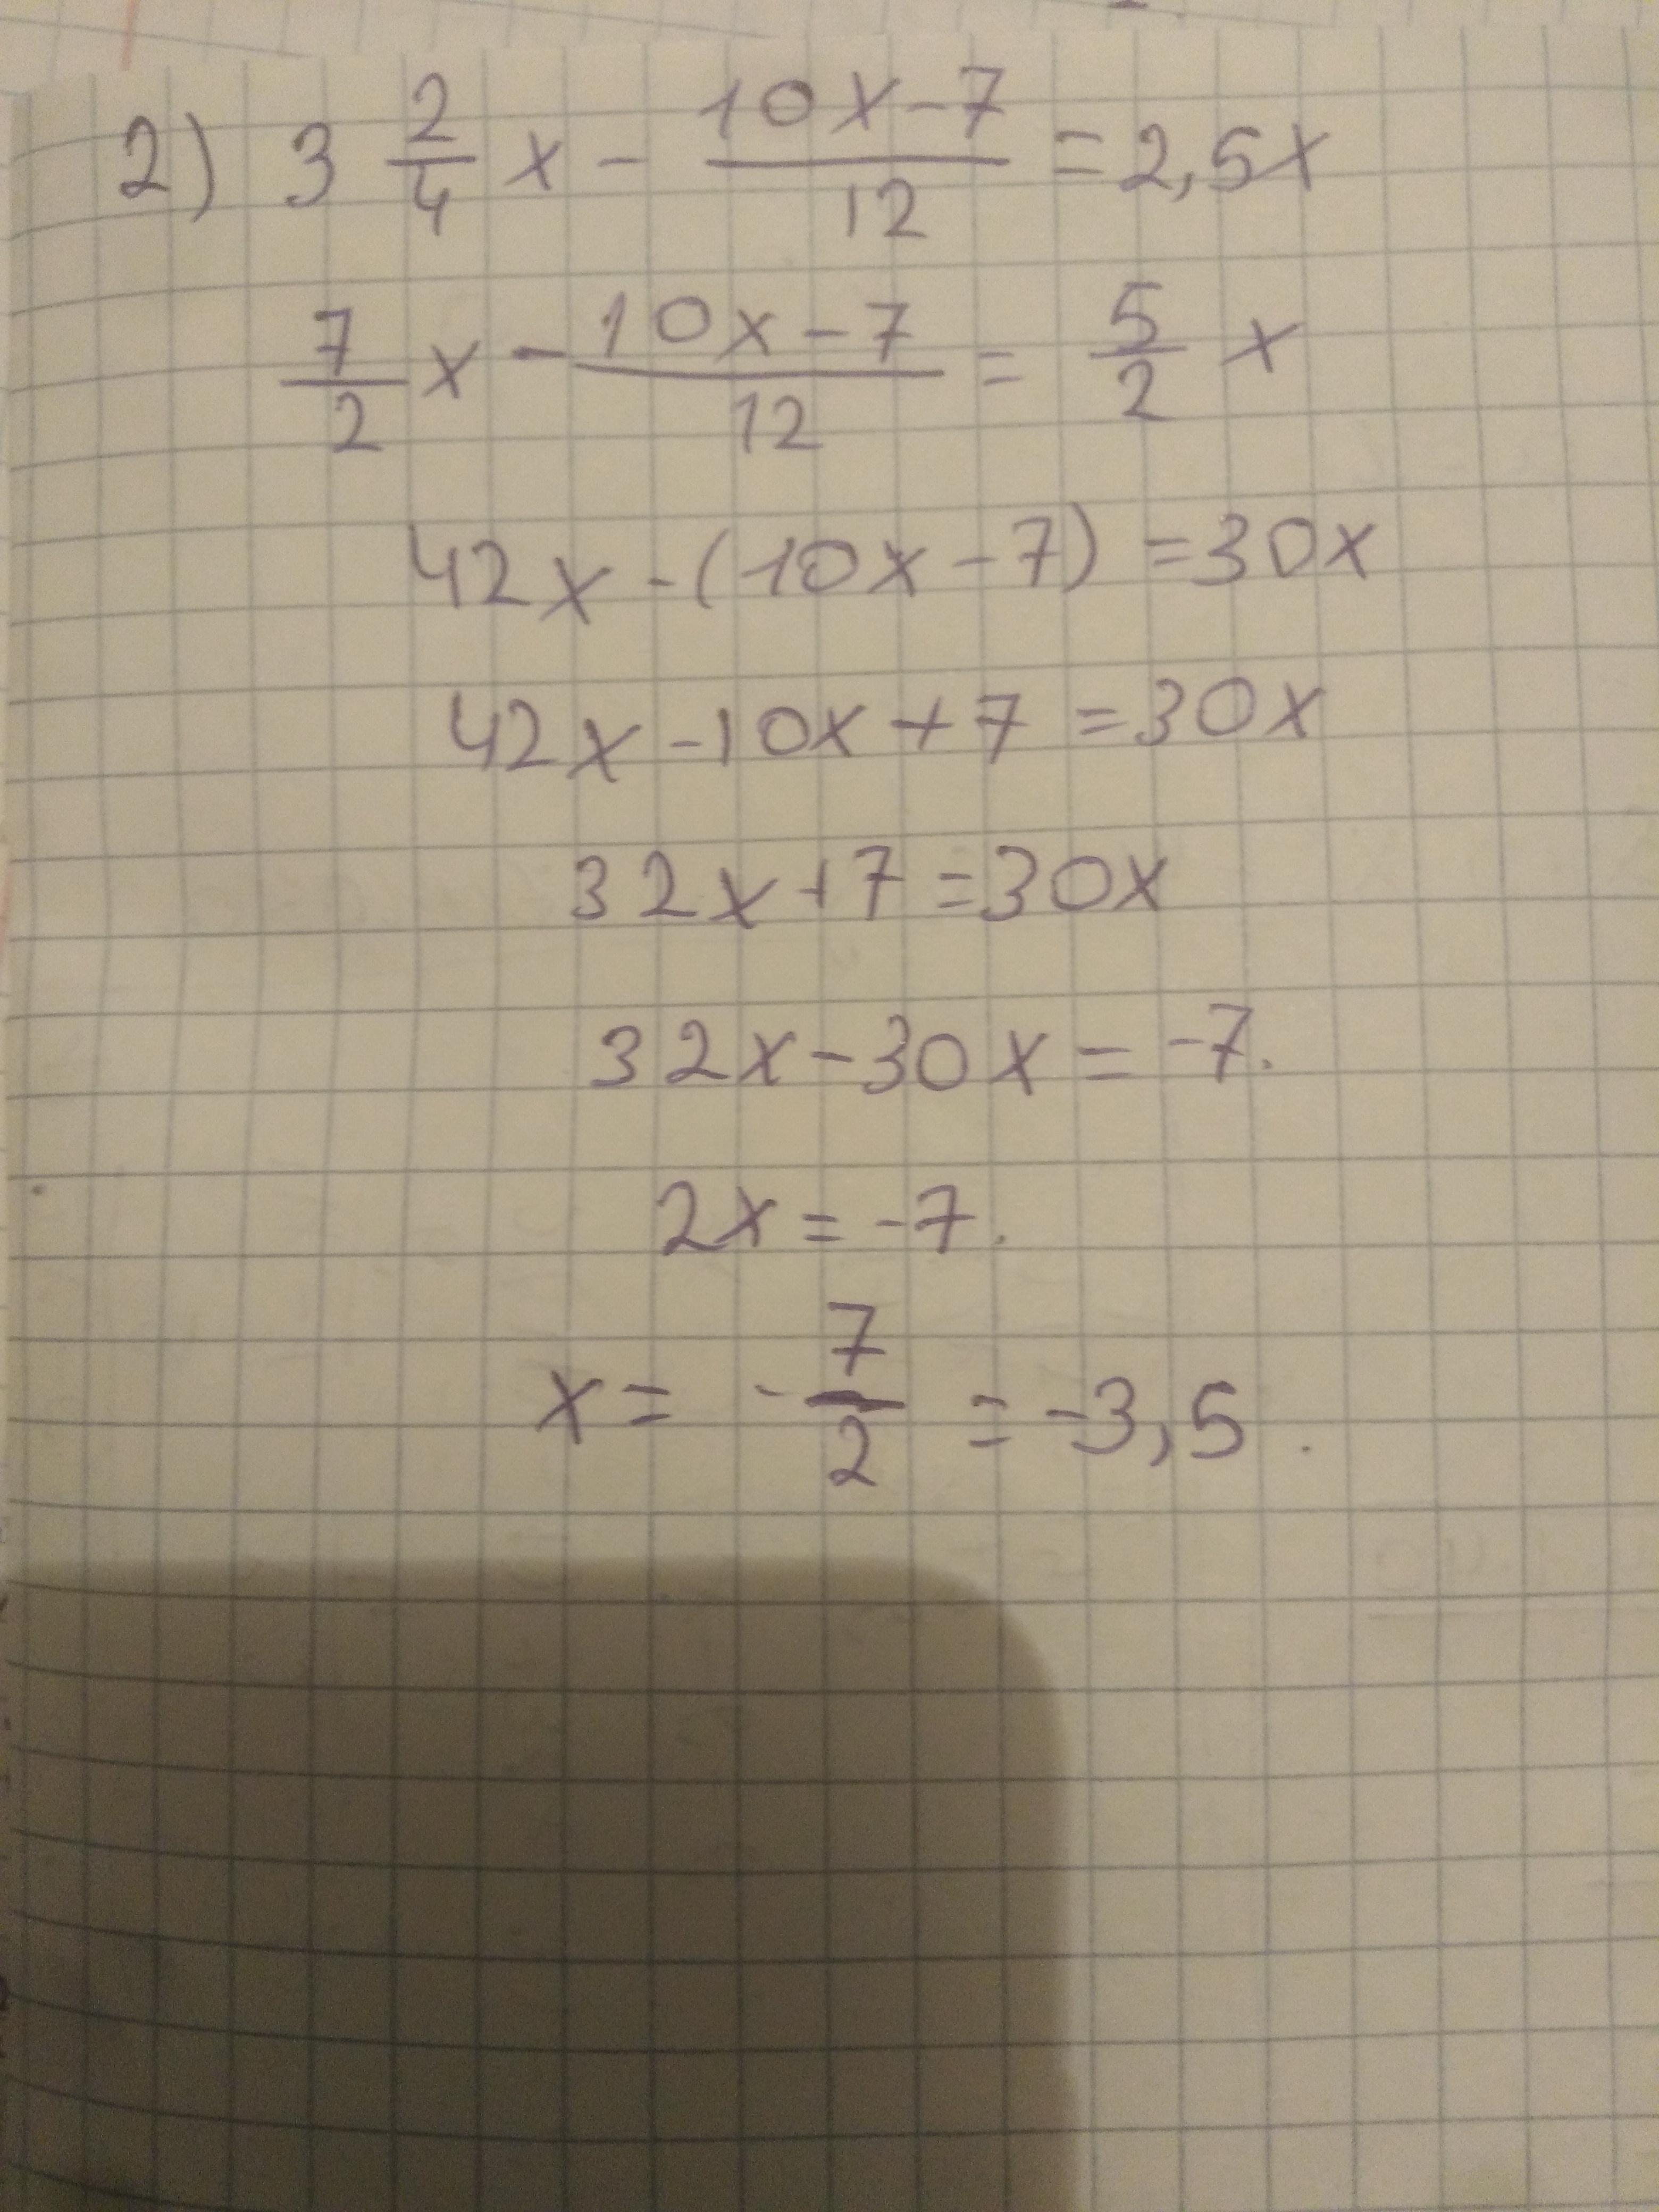 2) 3 2/4 x - (10x-7)/12 = 2,5x
7/2 x - (10x-7)/12 = 5/2 x
42x-(10x-7)=30x
42x-10x+7=30x
32x+7=30x
32x-30x=-7.
2x=-7.
x= -7/2 = -3,5.